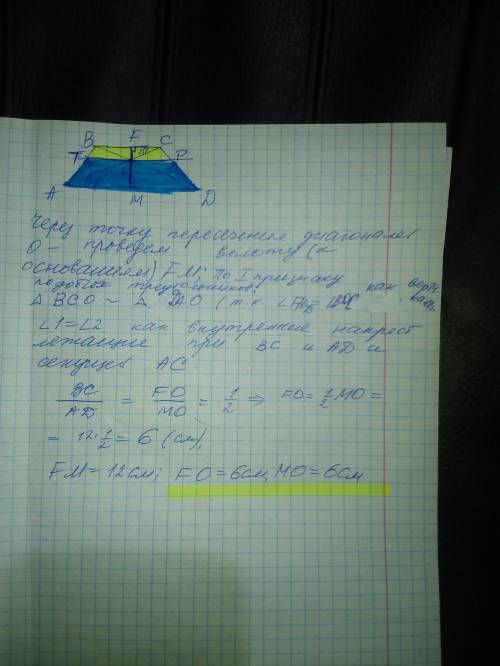 B F C
T P
A M D
Через точку пересечения диагоналей
О - проведем высоту (к
основаниям) FM; По I признаку
подобия треугольников как верт
Δ BCO ~ Δ DAO (т.к.
∠1=∠2 как внутренние накрест
лежащие при BC и AD и
секущей AC
BC/AD = FO/MO = 1/2 ⇒ FO = 1/2 MO =
= 12·1/2 = 6 (см),
FM = 12см; FO = 6см, MO = 6см